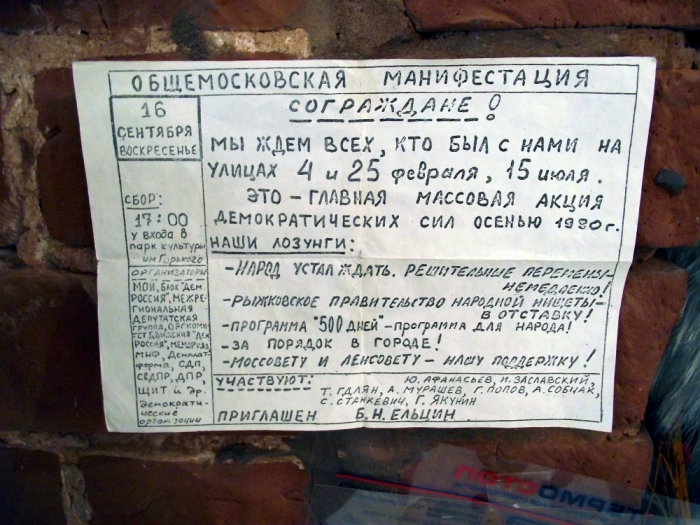 ОБЩЕМОСКОВСКАЯ МАНИФЕСТАЦИЯ
16
СЕНТЯБРЯ
ВОСКРЕСЕНЬЕ
СБОР:
17:00
у входа в
парк культуры
им. Горького
ОРГАНИЗАТОРЫ
МОИ, Блок "ДЕМ.
РОССИЯ", МЕЖРЕ-
ГИОНАЛЬНАЯ
ДЕПУТАТСКАЯ
ГРУППА, ОРГКОМИ-
ТЕТ ДВИЖЕНИЯ "ДЕМ
РОССИЯ", МЕМОРИАЛ,
МНФ, Демплат-
форма, СДП,
СВДПР, ДПР,
ЩИТ и др.
демократи-
ческие
организации
СОГРАЖДАНЕ!
МЫ ЖДЕМ ВСЕХ, КТО БЫЛ С НАМИ НА
УЛИЦАХ 4 и 25 февраля, 15 июля.
ЭТО - ГЛАВНАЯ МАССОВАЯ АКЦИЯ
ДЕМОКРАТИЧЕСКИХ СИЛ ОСЕНЬЮ 1990г.
НАШИ ЛОЗУНГИ:
-НАРОД УСТАЛ ЖДАТЬ. РЕШИТЕЛЬНЫЕ ПЕРЕМЕНЫ-
НЕМЕДЛЕННО!
-РЫЖКОВСКОЕ ПРАВИТЕЛЬСТВО НАРОДНОЙ НИЩЕТЫ-
В ОТСТАВКУ!
-ПРОГРАММА "500 ДНЕЙ"-ПРОГРАММА ДЛЯ НАРОДА!
-ЗА ПОРЯДОК В ГОРОДЕ!
-МОССОВЕТУ И ЛЕНСОВЕТУ - НАШУ ПОДДЕРЖКУ!
УЧАСТВУЮТ: Ю. АФАНАСЬЕВ, И. ЗАСЛАВСКИЙ,
Т. ГДЛЯН, А. МУРАШЕВ, Г. ПОПОВ, А. СОБЧАК,
С. СТАНКЕВИЧ, Г. ЯКУНИН
ПРИГЛАШЕН Б.Н. ЕЛЬЦИН